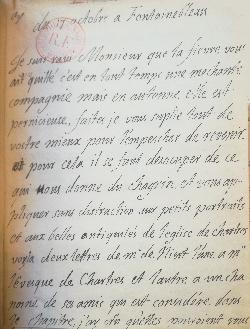 ay
du 17 octobre a Fontainebleau
Je suis ravi Monsieur que la fievre vous
ait quitté c'est en tout temps une mechante
compagnie mais en automne elle est
pernicieuse, faites je vous suplie tout de
vostre mieux pour l'empescher de revenir
et pour cela il se faut desocuper de ce
qui vous donne du chagrin et vous ap
pliquer sans distraction aux petits portraits
et aux belles antiquités de l'eglise de chartres
voyla deux lettres de mr de l'une a mr
l'eveque de Chartres et l'autre a un cha
noine de ses amis qui est consideré dans
le chapitre, j'ay